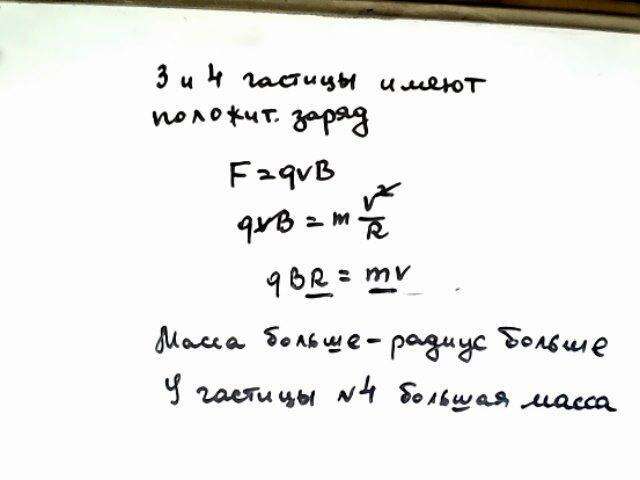 3 и 4 частицы имеют
положит. заряд
F = qvB
qvB = m v²/R
qBR = mv
Масса больше - радиус больше
У частицы №4 большая масса